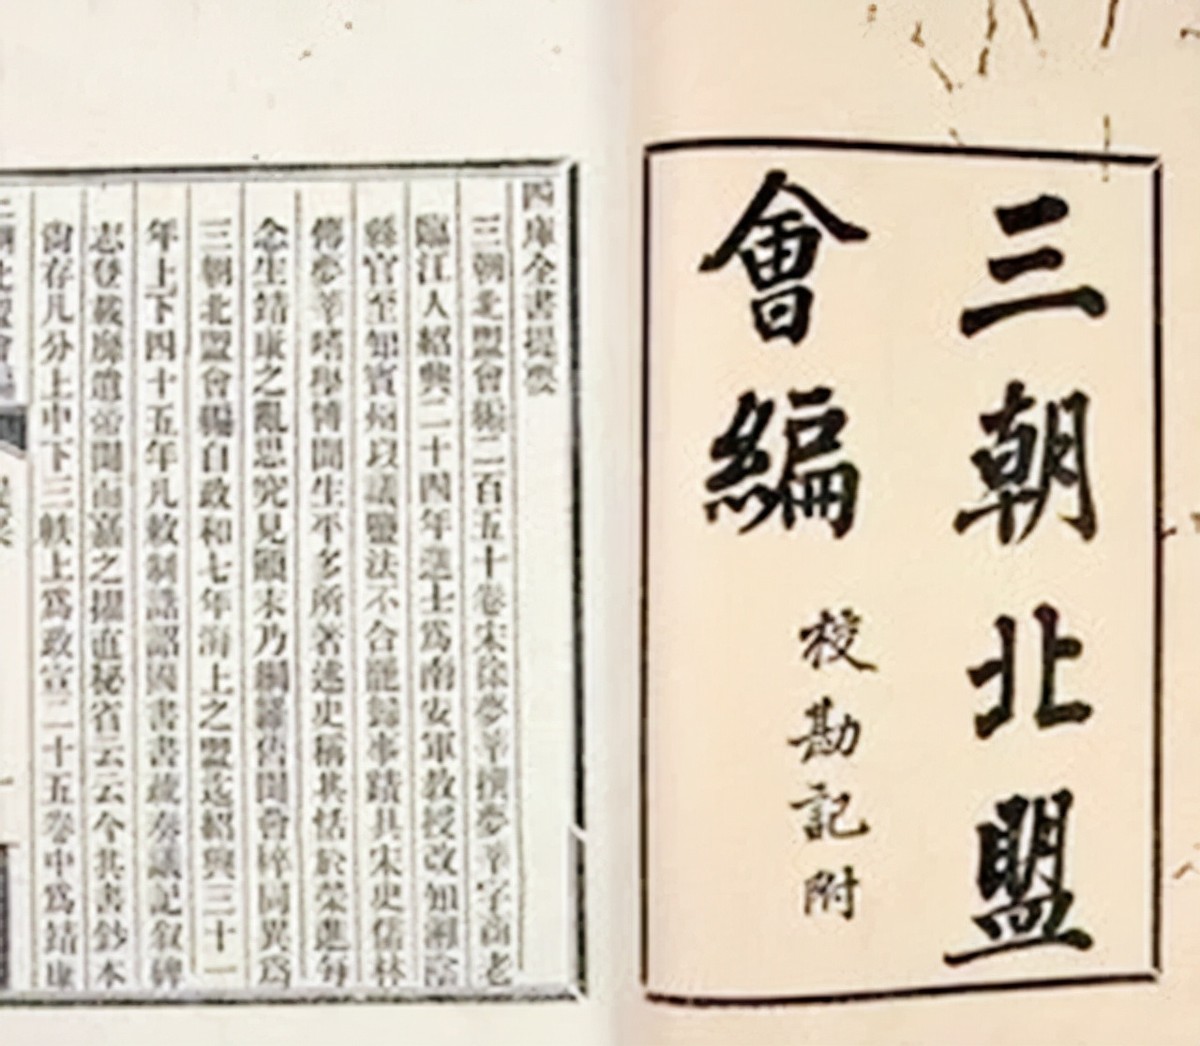 三朝北盟
會編
校勘記附
四庫全書提要
三朝北盟會編二百五十卷宋徐夢莘撰夢莘字商老
臨江人紹興二十四年進士爲南安軍教授改知湘陰
縣官至知賓州以議鹽法不合罷歸事蹟具宋史儒林
傳夢莘嗜學博聞生平多所著述史稱其恬於榮進每
念生靖康之亂思究見顚末乃網羅舊聞薈稡同異爲
三朝北盟會編自政和七年海上之盟迄紹興三十一
年上下四十五年凡敕制誥詔國書書疏奏議記敘碑
志登載靡遺帝聞而嘉之擢直秘省云云今其書鈔本
尙存凡分上中下三帙上爲政宣二十五卷中爲靖康
三朝北盟會編 提要 一